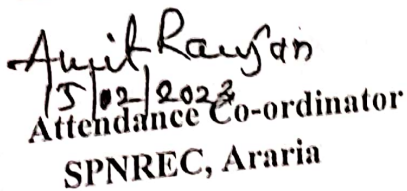 Amit Ranjan
15/02/2023
Attendance Co-ordinator
SPNREC, Araria